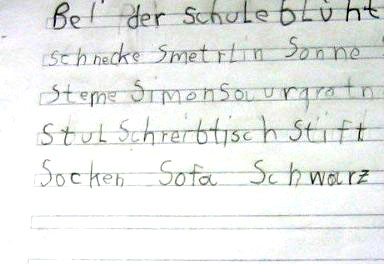 Bei der schule blüht
schnecke Smetrlin Sonne
Sterne Simon
Stul Schreibtisch Stift
Socken Sofa Schwarz